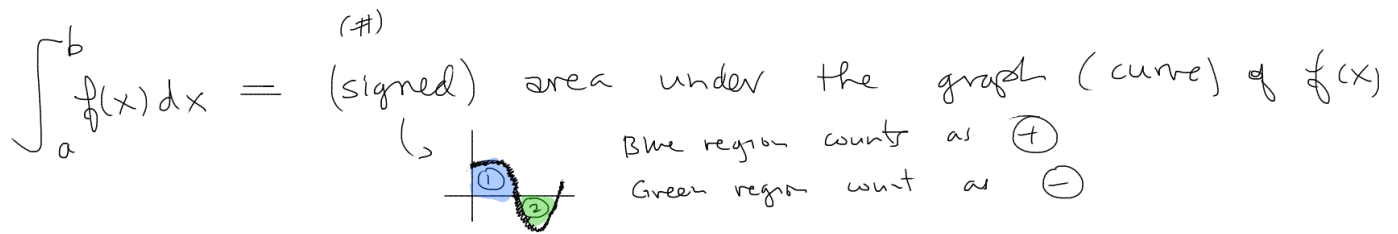 (#)
∫_a^b f(x) dx = (signed) area under the graph (curve) of f(x)
Blue region counts as ⊕
① Green region count as ⊖
②